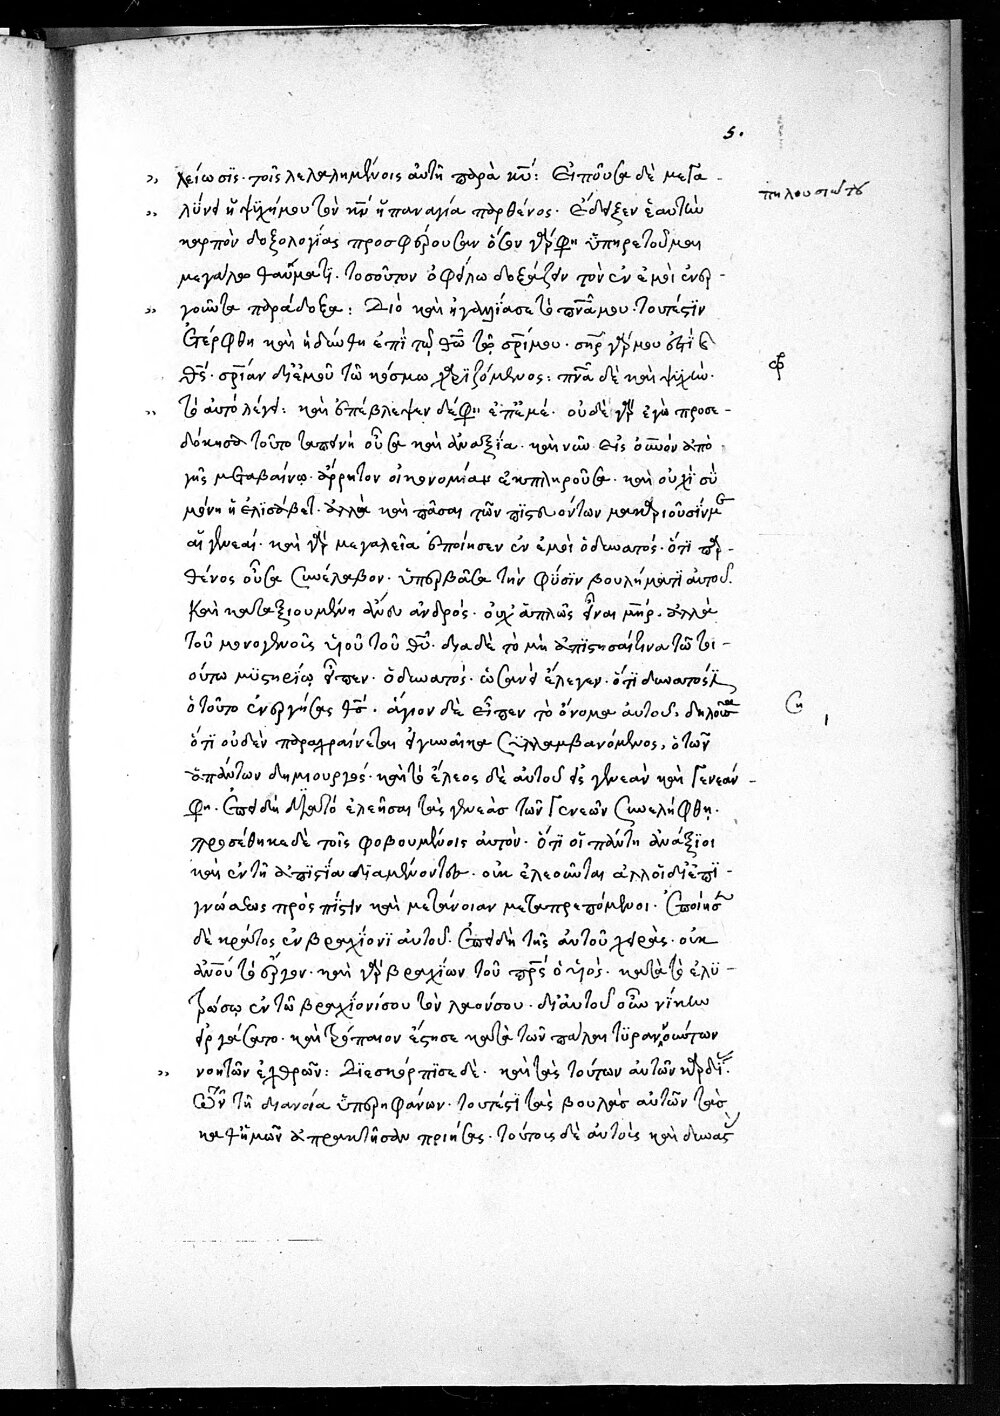 5.
λείωσις· τοῖς λελαλημένοις αὐτῇ παρὰ κυ: Εἰποῦσα δὲ μεγα-
λύνει ἡ ψυχή μου τὸν κν ἡ παναγία παρθένος. ἔδειξεν ἑαυτὴν
καρπὸν δοξολογίας προσφέρουσαν ὅσον γάρ φη ὑπηρετοῦμαι
μεγάλω θαύματι. τοσοῦτον ὀφείλω δοξάζειν τὸν ἐν ἐμοὶ ἐνερ-
γοῦντα παράδοξα: Διὸ καὶ ἠγαλλίασε τὸ πνα μου. τουτέστιν
ἐτέρφθη καὶ ἡδύνθη ἐπὶ τῷ θω τῷ σρι μου. σηρ γάρ μου ἐστὶ ὁ
θς. σριαν δι' ἐμοῦ τῶ κόσμω χαριζόμενος: πνα δὲ καὶ ψυχὴν.
τὸ αὐτὸ λέγει: καὶ ἐπέβλεψεν δέ φη ἐπ' ἐμέ. οὐδὲ γὰρ ἐγὼ προσε-
δόκησα τοῦτο ταπεινὴ οὖσα καὶ ἀναξία. καὶ νῦν εἰς οὐνον ἀπὸ
γῆς μεταβαίνω. ἄρρητον οἰκονομίαν ἐκπληροῦσα. καὶ οὐχὶ σὺ
μόνη ἡ ἐλισάβετ. ἀλλὰ καὶ πᾶσαι τῶν πιστευόντων μακαριοῦσίν με
αἱ γενεαί. καὶ γὰρ μεγαλεῖα ἐποίησεν ἐν ἐμοὶ ὁ δυνατός. ὅτι παρ-
θένος οὖσα συνέλαβον. ὑπερβᾶσα τὴν φύσιν βουλήματι αὐτοῦ.
Καὶ καταξιουμένη ἄνευ ἀνδρός. οὐχ' ἁπλῶς εἶναι μηρ. ἀλλὰ
τοῦ μονογενοῦς υἱοῦ τοῦ θυ. διὰ δὲ τὸ μὴ ἀπιστῆσαί τινα τῶ τοι-
ούτω μυστηρίω εἶπεν. ὁ δυνατός. ὡσανεὶ ἔλεγεν. ὅτι δυνατός ἐστιν
ὁ τοῦτο ἐνεργήσας θς. ἅγιον δὲ εἶπεν τὸ ὄνομα αὐτοῦ. δηλοῦσα
ὅτι οὐδὲν παραχραίνεται εἰ γυναῖκα συλλαμβανόμενος, ὁ τῶν
ἁπάντων δημιουργός. καὶ τὸ ἔλεος δὲ αὐτοῦ εἰς γενεὰν καὶ γενεάν
φη. ἐπειδὴ διὰ τὸ ἐλεῆσαι τὰς γενεὰσ τῶν γενεῶν συνελήφθη.
προσέθηκε δὲ τοῖς φοβουμένοις αὐτὸν. ὅτι οἱ πάντη ἀνάξιοι
καὶ ἐν τῇ ἀπιστία διαμένοντες. οὐκ ἐλεοῦνται ἀλλ' οἱ δι' ἐπι-
γνώσεως πρὸς πίστιν καὶ μετάνοιαν μετατρεπόμενοι. Ἐποίησε
δὲ κράτος ἐν βραχίονι αὐτοῦ. ἐπειδὴ τῆς αὐτοῦ χειρὸς. οὐκ
ἀνου τὸ ἔργον. καὶ γὰρ βραχίων τοῦ πρς ὁ υἱὸς. κατὰ τὸ ἐλυ-
τρώσω ἐν τῶ βραχίονί σου τὸν λαόν σου. δι' αὐτοῦ οὖν νίκην
εἰργάσατο. καὶ τρόπαιον ἔστησε κατὰ τῶν πάλαι τυραννούντων
νοητῶν ἐχθρῶν: Διεσκόρπισε δὲ. καὶ τὰς τούτων αὐτῶν καρδίας.
τῶν τῇ διανοία ὑπερηφάνων. τουτέστι τὰς βουλὰσ αὐτῶν τὰσ
καθ' ἡμῶν ἀπρακτῆσαι ποιήσας. τούτοις δὲ αὐτοὶς καὶ δυνάστ